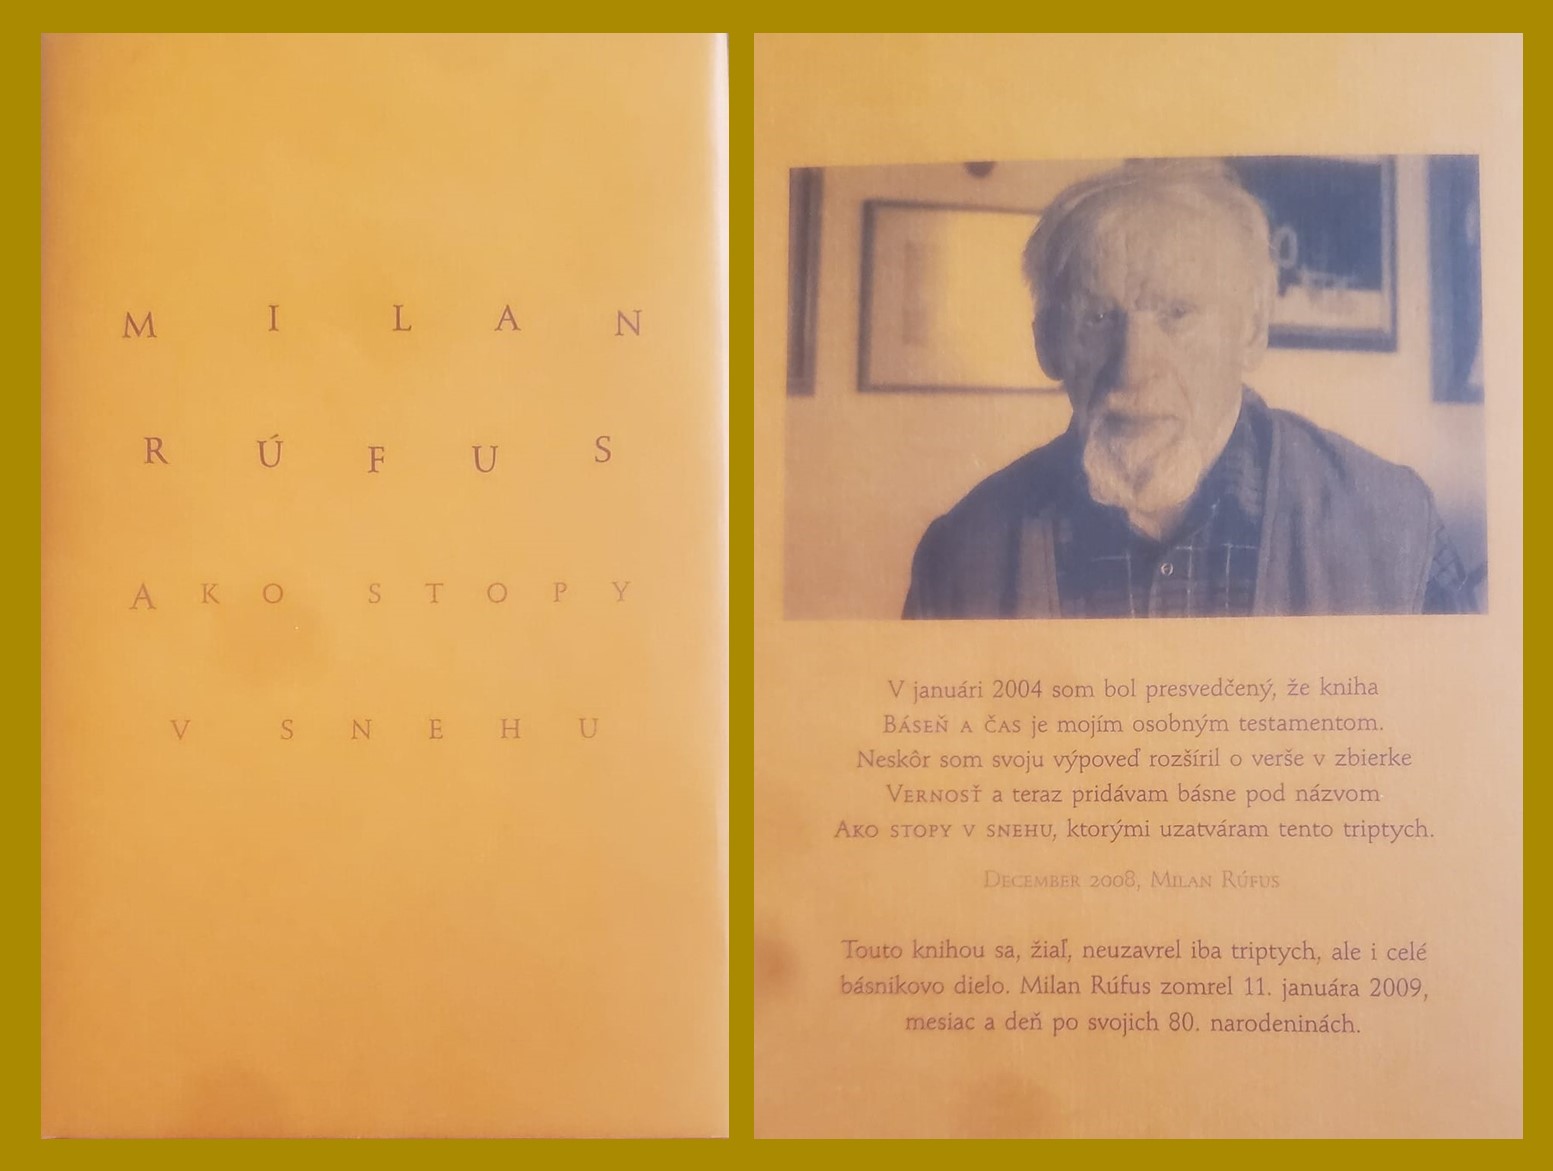 MILAN
RÚFUS
AKO STOPY
V SNEHU
V januári 2004 som bol presvedčený, že kniha
BÁSEŇ A ČAS je mojím osobným testamentom.
Neskôr som svoju výpoveď rozšíril o verše v zbierke
VERNOSŤ a teraz pridávam básne pod názvom
AKO STOPY V SNEHU, ktorými uzatváram tento triptych.
DECEMBER 2008, MILAN RÚFUS
Touto knihou sa, žiaľ, neuzavrel iba triptych, ale i celé
básnikovo dielo. Milan Rúfus zomrel 11. januára 2009,
mesiac a deň po svojich 80. narodeninách.